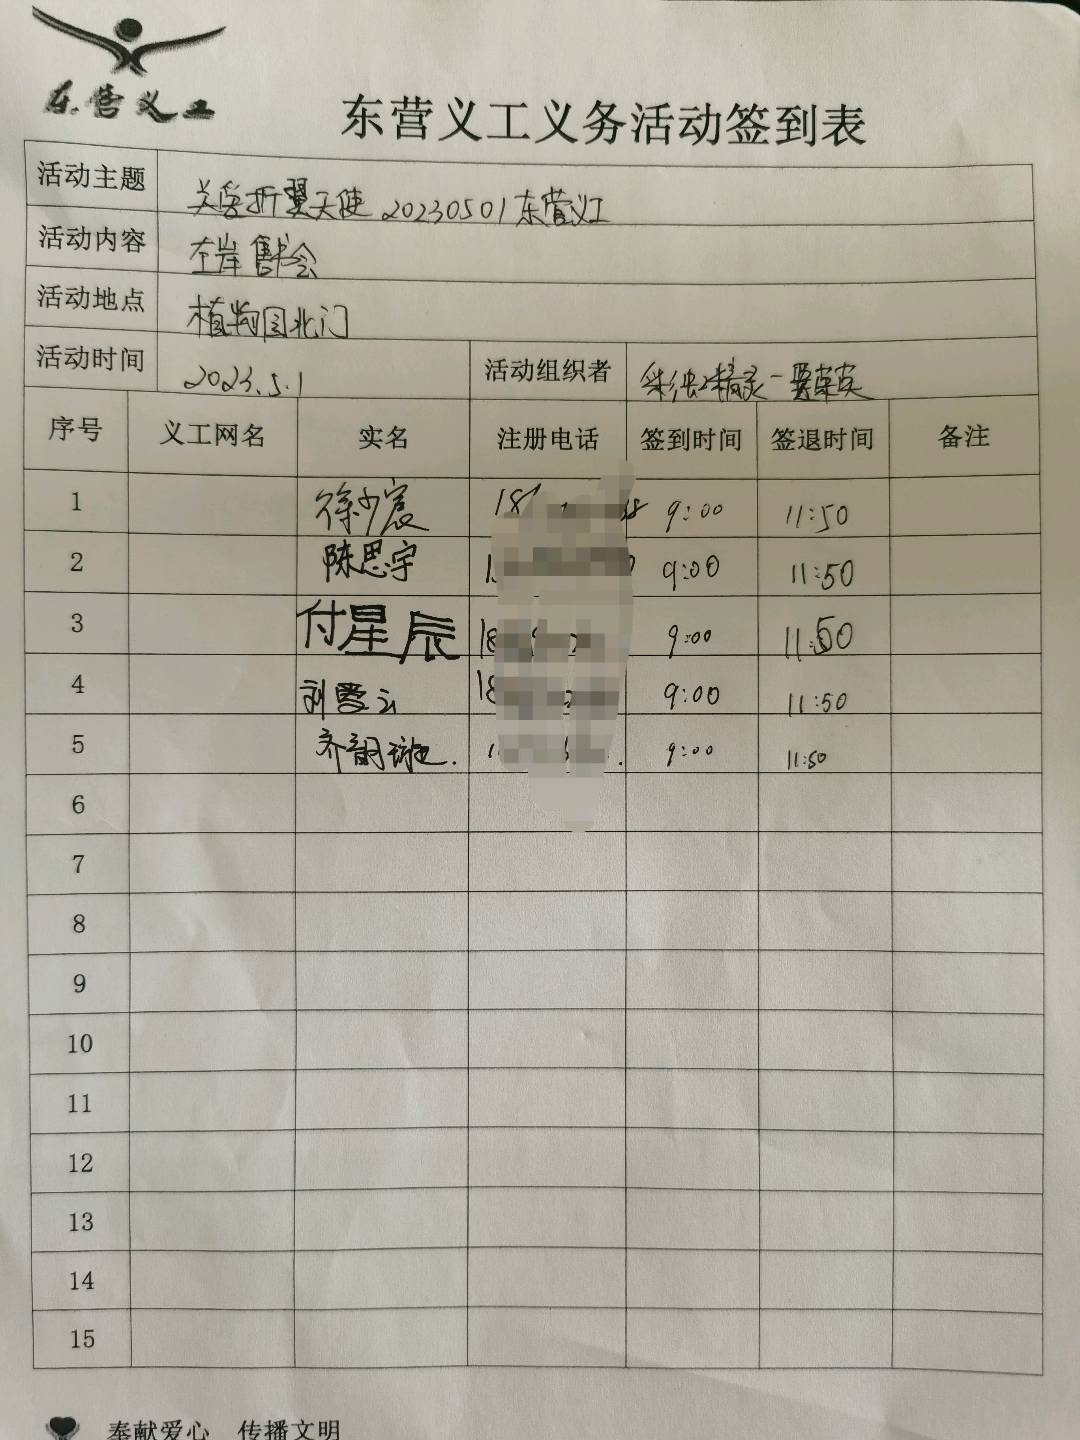 东营义工
东营义工义务活动签到表
活动主题 关爱折翼天使 20230501东营义工
活动内容 左岸售书会
活动地点 植物园北门
活动时间 2023.5.1 活动组织者
序号 义工网名 实名 注册电话 签到时间 签退时间 备注
1 徐少宸 18 9:00 11:50
2 陈思宇 9:00 11:50
3 付星辰 18 9:00 11:50
4 刘爱云 18 9:00 11:50
5 9:00 11:50
6
7
8
9
10
11
12
13
14
15
奉献爱心 传播文明